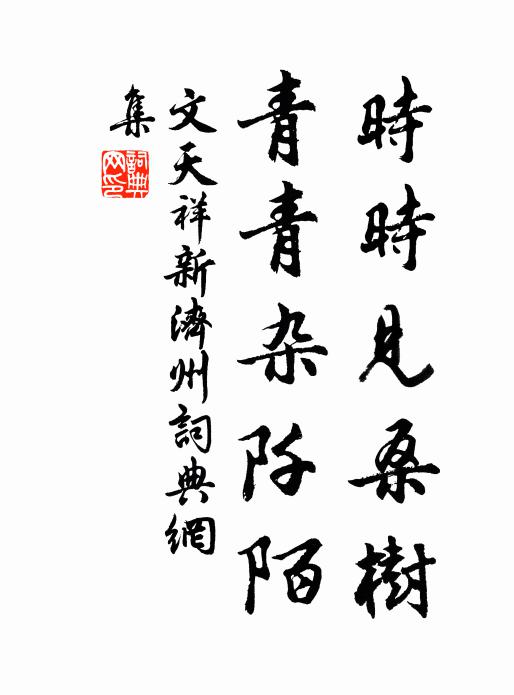 時時見桑樹
青青杂阡陌
文天祥新濟州詞典網
集
詞典
网印